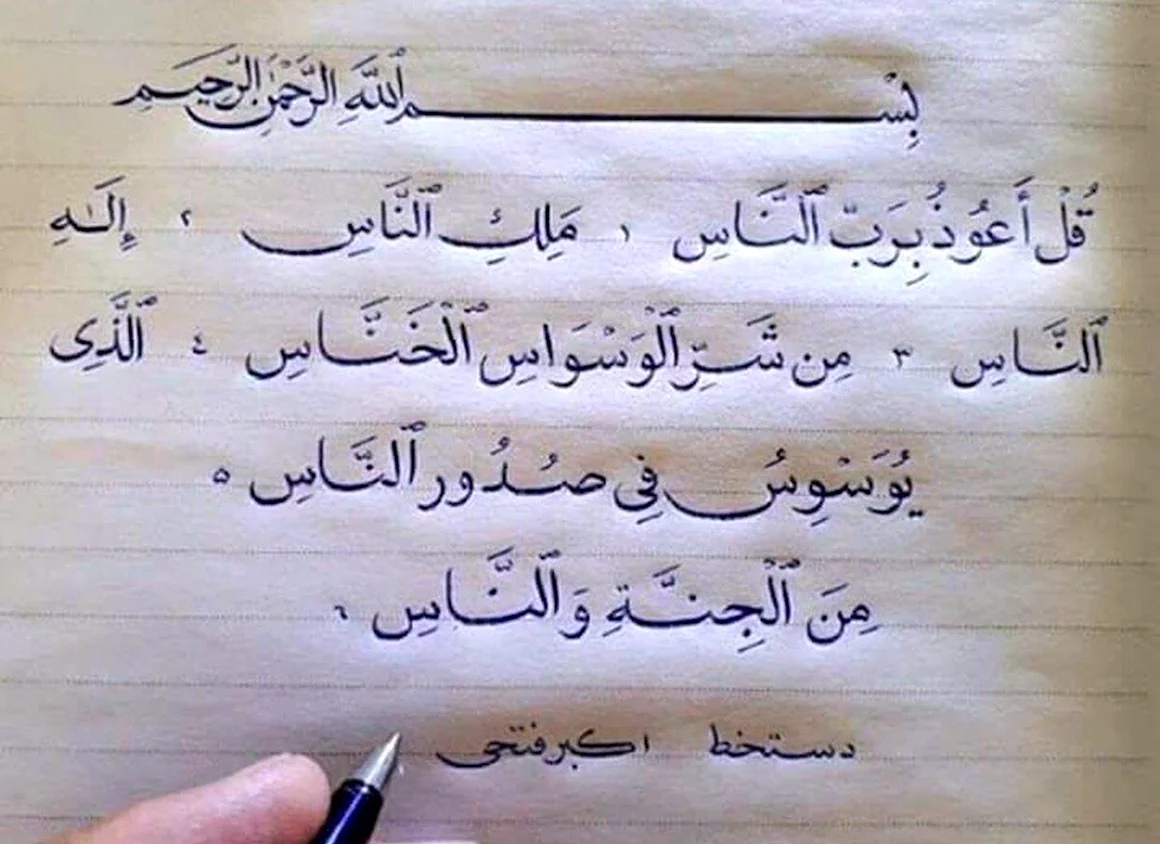 بِسْمِ ٱللَّهِ الرَّحْمَٰنِ الرَّحِيمِ
قُلْ أَعُوذُ بِرَبِّ ٱلنَّاسِ ١ مَلِكِ ٱلنَّاسِ ٢ إِلَـٰهِ
ٱلنَّاسِ ٣ مِن شَرِّ ٱلْوَسْوَاسِ ٱلْخَنَّاسِ ٤ ٱلَّذِى
يُوَسْوِسُ فِى صُدُورِ ٱلنَّاسِ ٥
مِنَ ٱلْجِنَّةِ وَٱلنَّاسِ ٦
دستخط اکبر فتحی